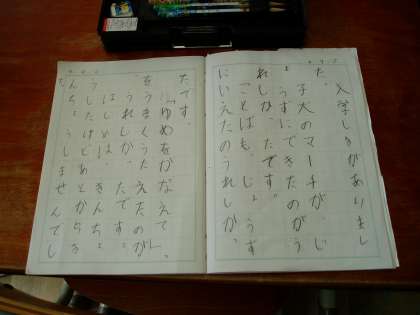 入学しきがありまし
た。
子犬のマーチが、じ
ょうずにできたのがう
れしかったです。
ことばも、じょうず
にいえたのうれしかっ
たです。
「ゆめをかなえて」、
をうまくうたえたのが
うれしかったです。
はじめは、きんちょ
うしたけどあとからき
んちょうしませんでし
た。